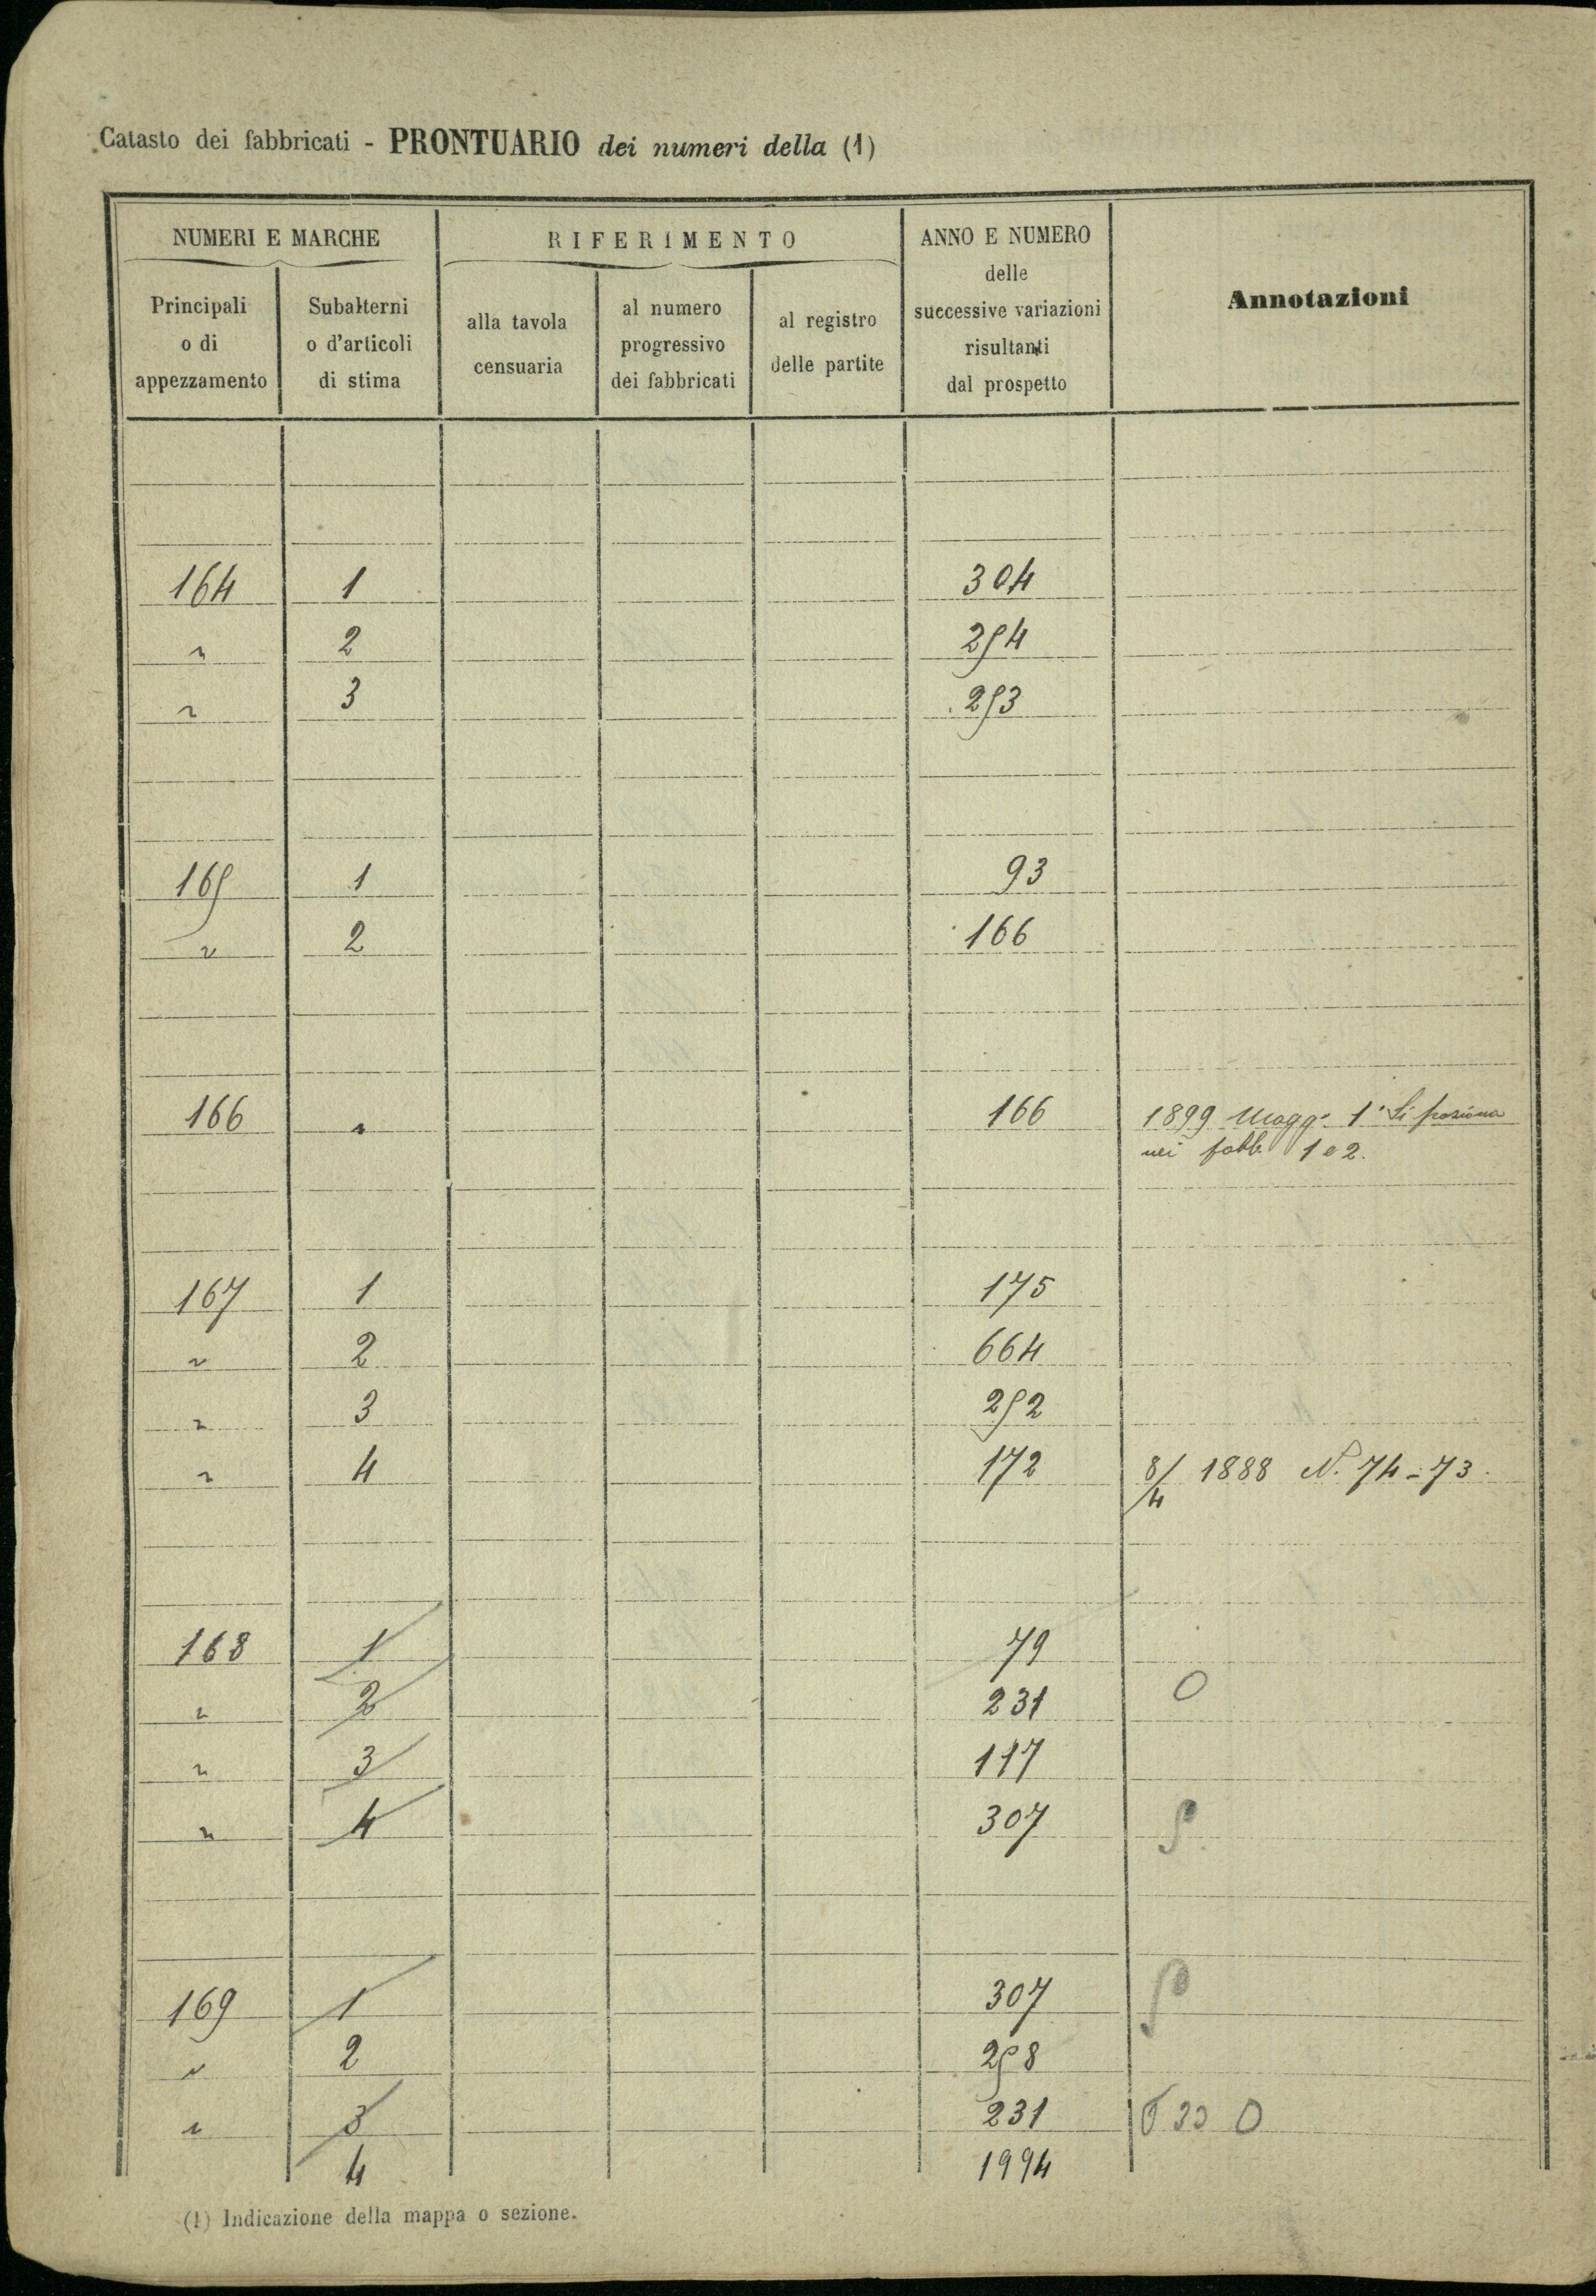 Catasto dei fabbricati - PRONTUARIO dei numeri della (1)
NUMERI E MARCHE RIFERIMENTO ANNO E NUMERO delle successive variazioni risultanti dal prospetto Annotazioni
Principali o di appezzamento Subalterni o d'articoli di stima alla tavola censuaria al numero progressivo dei fabbricati al registro delle partite
164 1 304
" 2 254
" 3 253
165 1 93
" 2 166
166 " 166 1899 Magg° 1° Si fraziona
nei fabb. 1 e 2.
167 1 175
" 2 664
" 3 252
" 4 172 8/4 1888 N. 74-73.
168 1 79
" 2 231 O
" 3 117
" 4 307
169 1 307
" 2 258
" 3 231
4 1994
(1) Indicazione della mappa o sezione.